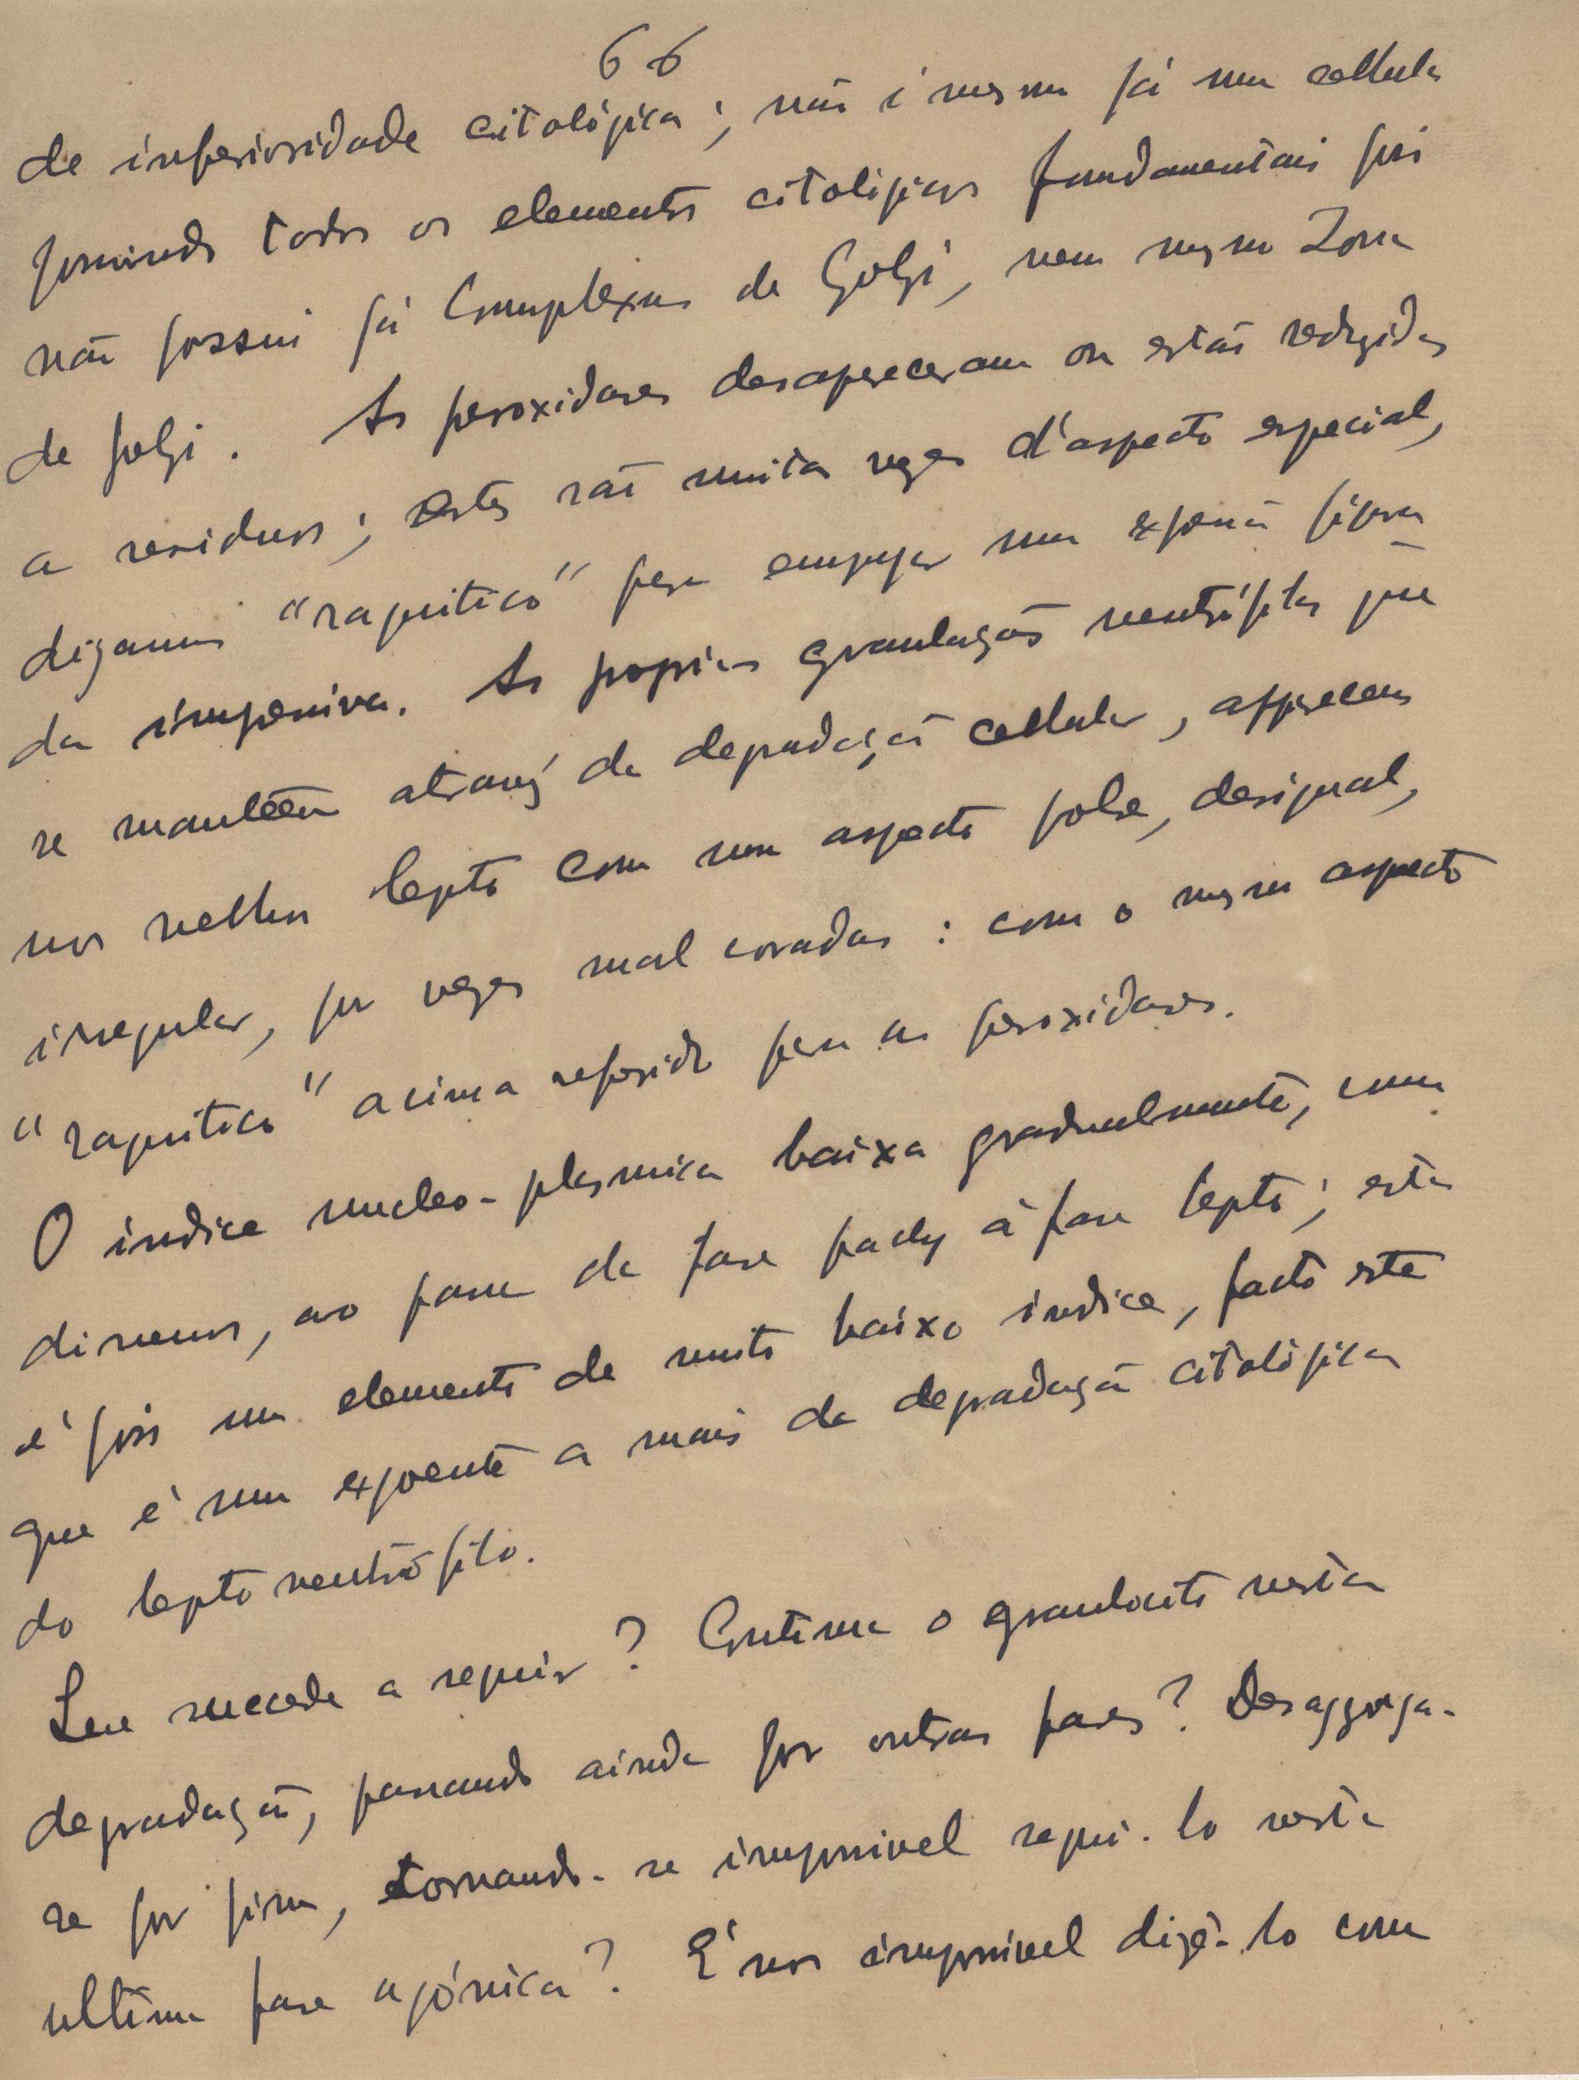 66
de inferioridade citológica; não é mesmo já uma cellula
possuindo todos os elementos citologicos fundamentais pois
não possui já Complexus de Golgi, nem mesmo Zona
de Golgi. As peroxidases desapareceram ou estão reduzidas
a residuos; estes são muitas vezes d'aspecto especial,
digamos "raquitico" para empregar uma expressão figura
da impressiva. As proprias granulações neutrófilas que
se mantêem atravéz da degradação cellular, apparecem
nos velhos lepto com um aspecto pobre, desigual,
irregular, por vezes mal coradas: com o mesmo aspecto
"raquitico" acima referido para as peroxidases.
O indice nucleo-plasmica baixa gradualmente, como
dissemos, ao passar da fase pachy á fase lepto; esta
é pois um elemento de muito baixo indice, facto este
que é um expoente a mais da degradação citológica
do lepto neutrófilo.
Que succede a seguir? Continua o granulocito nesta
degradação, passando ainda por outras fases? Desaggrega-
se por fim, tornando-se impossivel segui-lo nesta
ultima fase agónica? É nos impossivel dizê-lo com